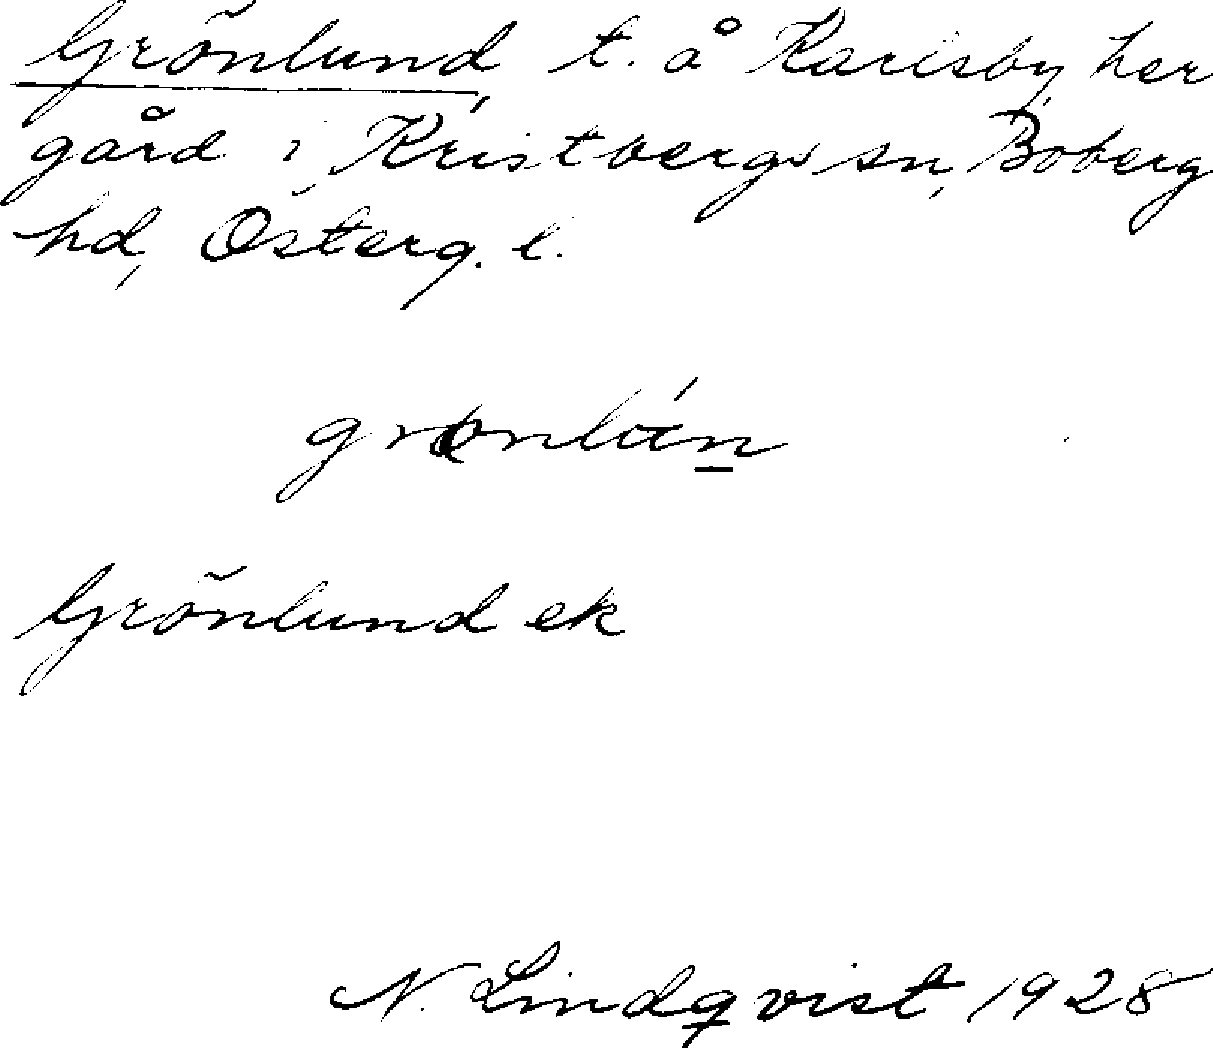 Grönlund, t. å Karlsby her
gård i Kristbergs sn, Boberg
hd, Österg. l.
Grönlund ek
N. Lindqvist 1928